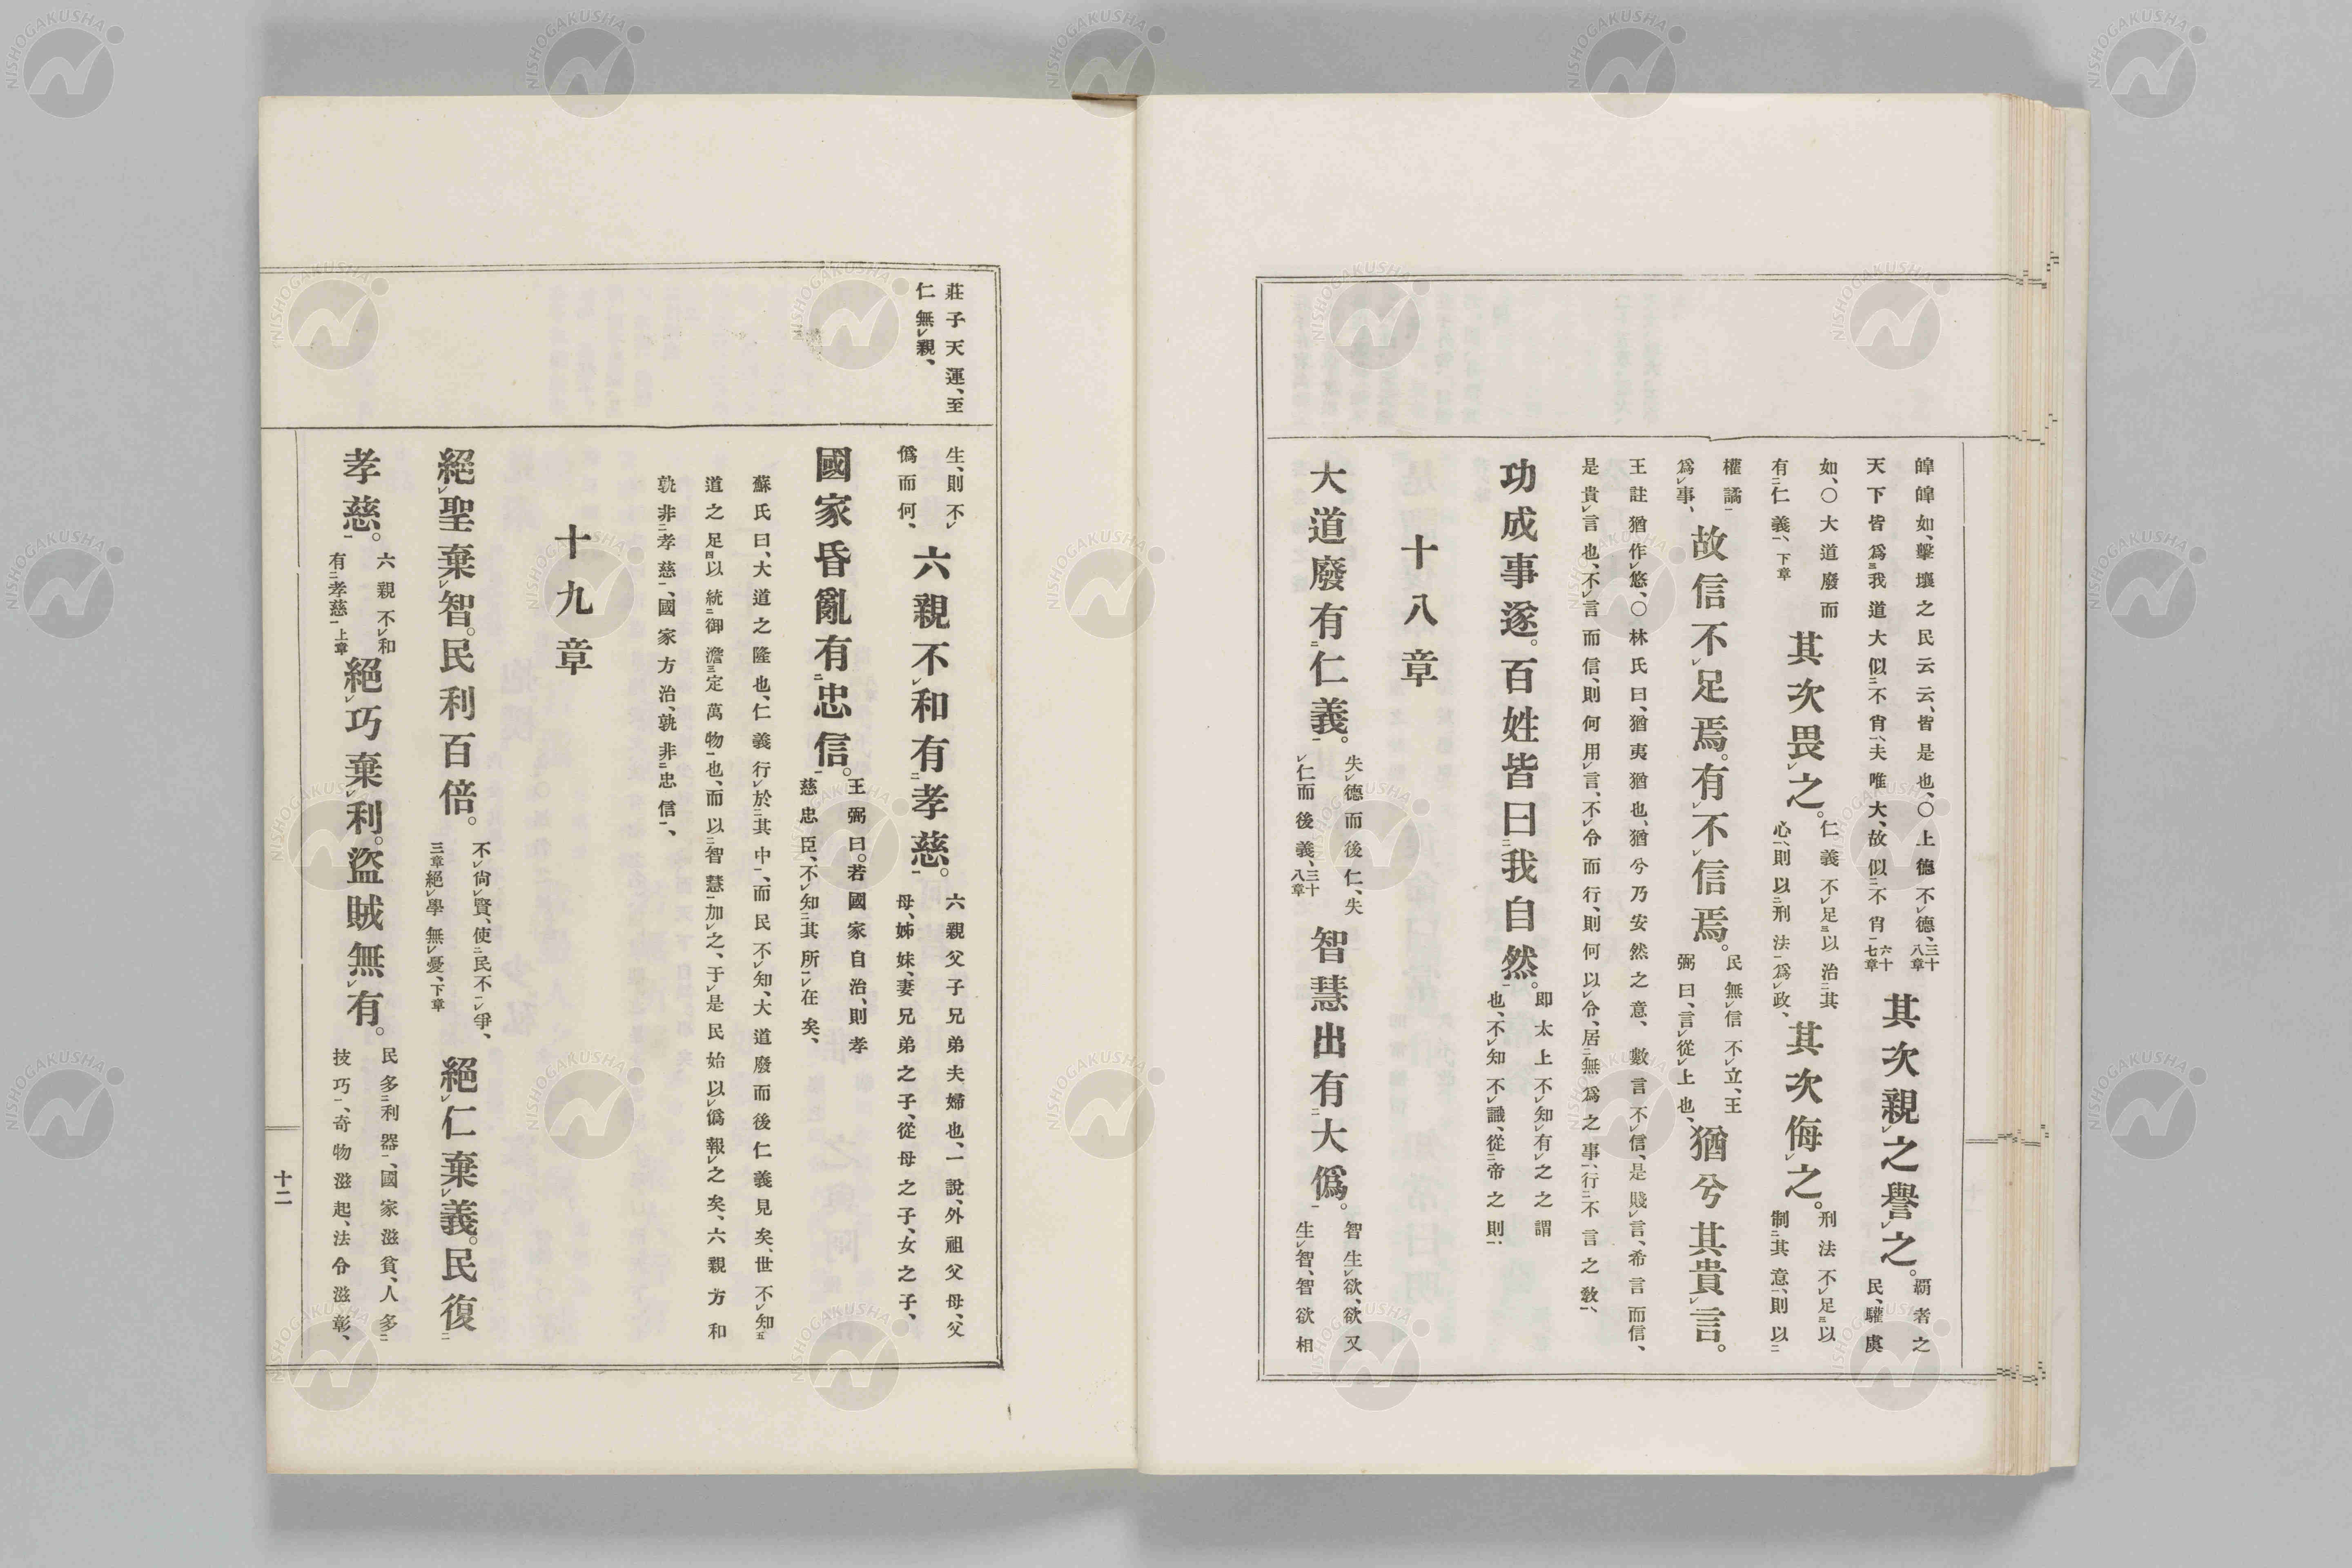 皥皥如、擊壤之民云云、皆是也、〇上德不㆑德、三十八章
天下皆爲㆔我道大似㆓不肖㆒、夫唯大、故似㆓不肖㆒六十七章
其次親㆑之譽㆑之。
覇者之
民、驩虞
如、〇大道廢而
有㆓仁義㆒、下章
其次畏㆑之。
仁義不㆑足㆔以治㆓其
心㆒、則以㆓刑法㆒爲㆑政、
其次侮㆑之。
刑法不㆑足㆔以
制㆓其意㆒、則以㆓
權譎㆒
爲㆑事、
故信不㆑足焉。有㆑不㆑信焉。
民無㆑信不㆑立、王
弼曰、言㆑從㆑上也、
猶兮其貴㆑言。
王註猶作㆑悠、〇林氏曰、猶夷猶也、猶兮乃安然之意、數言不㆑信、是賤㆑言、希言而信、
是貴㆑言也、不㆑言而信、則何用㆑言、不㆑令而行、則何以㆑令、居㆓無爲之事㆒、行㆓不言之敎㆒、
功成事遂。百姓皆曰㆓我自然。㆒
卽太上不㆑知㆑有㆑之之謂
也、不㆑知不㆑識、從㆓帝之則㆒、
十八章
大道廢有㆓仁義。㆒
失㆑德而後仁、失
㆑仁而後義、三十八章
智慧出有㆓大僞。㆒
智生㆑欲、欲又
生㆑智、智欲相
莊子天運、至
仁無㆑親、
生、則不㆑
僞而何、
六親不㆑和有㆓孝慈。㆒
六親父子兄弟夫婦也、一說、外祖父母、父
母、姊妹、妻兄弟之子、從母之子、女之子、
國家昏亂有㆓忠信。㆒
王弼曰。若國家自治、則孝
慈忠臣、不㆑知㆓其所㆒㆑在矣、
蘇氏曰、大道之隆也、仁義行㆑於㆓其中㆒、而民不㆑知、大道廢而後仁義見矣、世不㆑知㆘
道之足㆕以統㆓御澹㆔定萬物㆒也、而以㆓智慧㆒加㆑之、于㆑是民始以㆑僞報㆑之矣、六親方和
孰非㆓孝慈㆒、國家方治、孰非㆓忠信㆒、
十九章
絕㆑聖棄㆑智。民利百倍。
不㆑尙㆑賢、使㆓民不㆒㆑爭、
三章絕㆑學無㆑憂、下章
絕㆑仁棄㆑義。民復㆓
孝慈。㆒
六親不㆑和
有㆓孝慈㆒上章
絕㆑巧棄㆑利。盜賊無㆑有。
民多㆓利器㆒、國家滋貧、人多㆓
技巧㆒、奇物滋起、法令滋彰、
十二